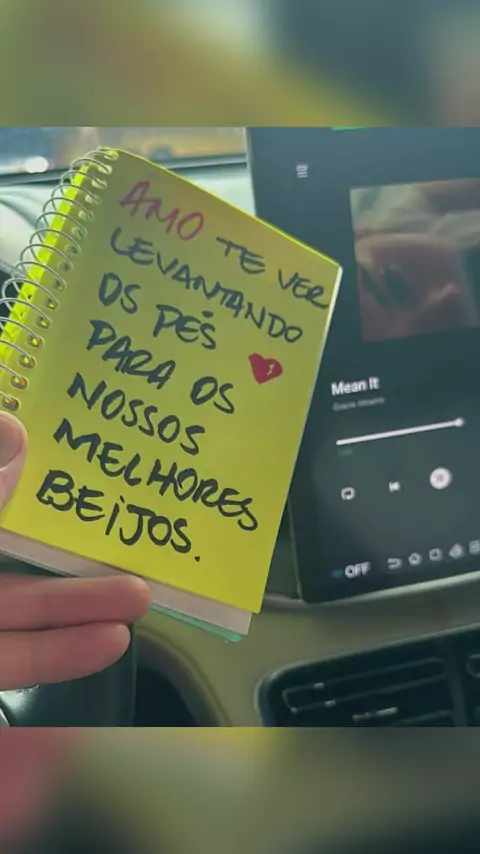 AMO TE VER
LEVANTANDO
OS PÉS
PARA OS
NOSSOS
MELHORES
BEIJOS.
Mean It
OFF